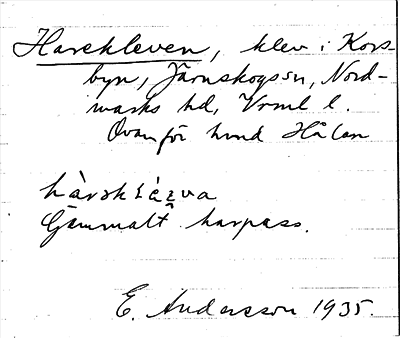 Harekleven, klev i Kors-
byn, Järnskogs sn, Nord-
marks hd, Vrml l.
Ovanför
Gammalt harpass.
E. Andersson 1935.